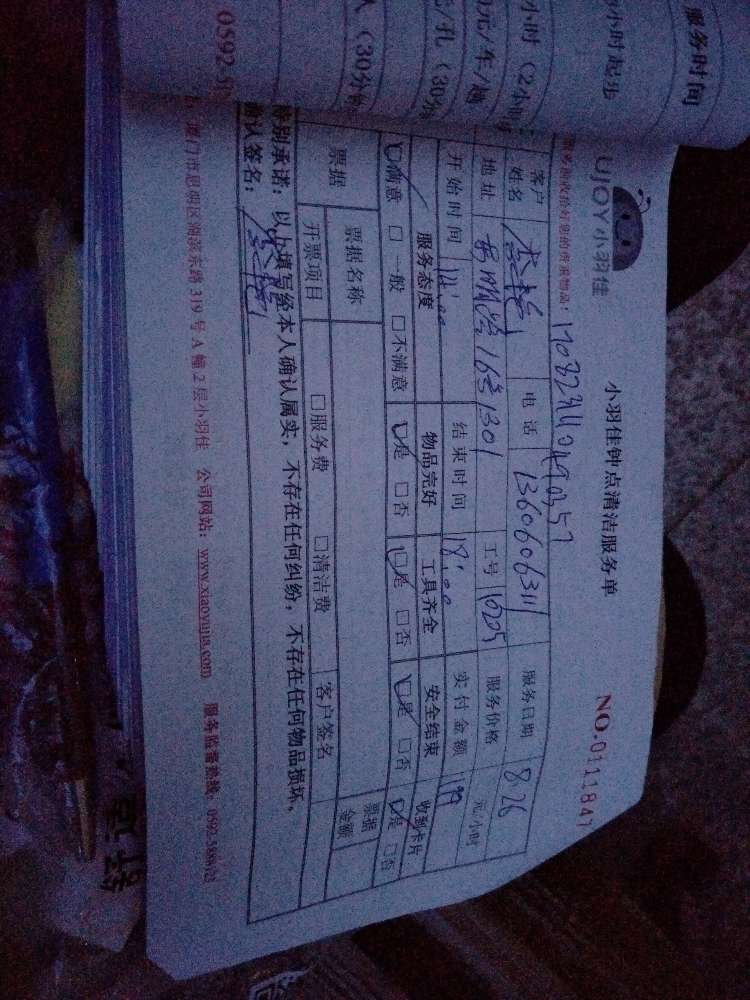 服务时间
小时起步
小时（2小时
0元/车/趟
元/孔（30分
人（30分钟
0592-5
UJOY小羽佳
小羽佳钟点清洁服务单
NO.0111847
服务前收拾好您的贵重物品：
客户姓名 电话 13606063111 服务日期 8.26
地址 16号1301 工号 16205 服务价格 元/小时
开始时间 14:00 结束时间 18:00 实付金额 199
服务态度 物品完好 工具齐全 安全结束 收到卡片
☑满意 □一般 □不满意 ☑是 □否 ☑是 □否 ☑是 □否 ☑是 □否
票据 票据名称 票据金额
开票项目 □服务费 □清洁费 客户签名
特别承诺：以上填写经本人确认属实，不存在任何纠纷，不存在任何物品损坏。
确认签名：
厦门市思明区湖滨东路319号A幢2层小羽佳 公司网站：www.xiaoyujia.com 服务监督热线：0592-